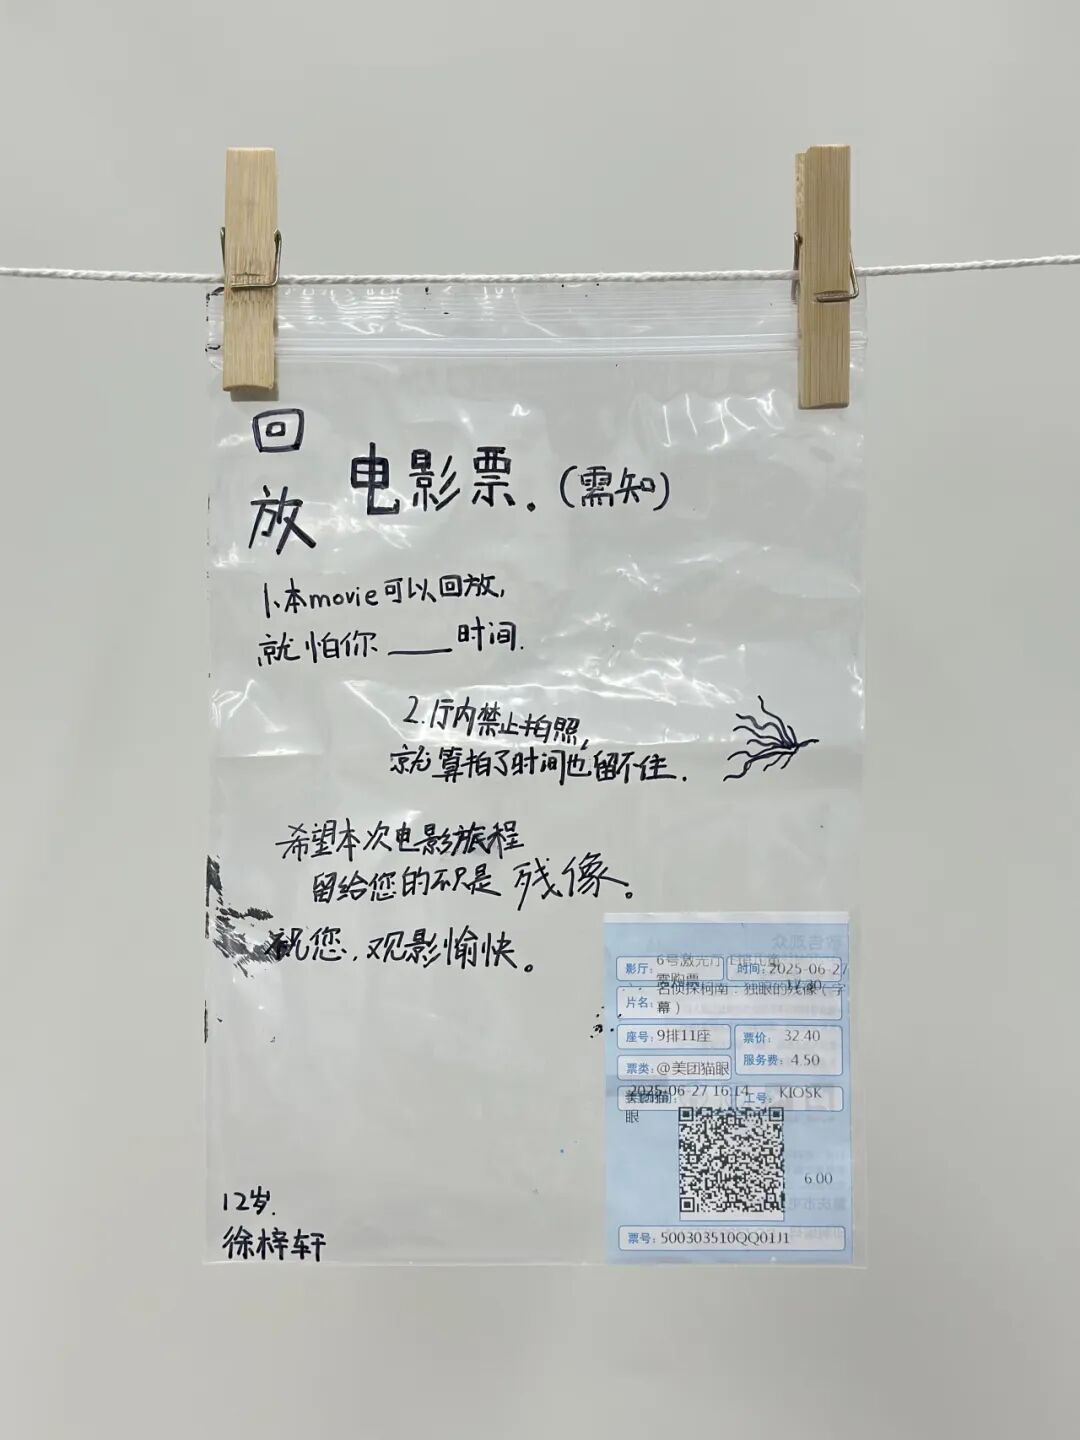 回放
电影票.（需知）
1、本movie可以回放,
就怕你____时间.
2.厅内禁止拍照,
就算拍了时间也留不住.
希望本次电影旅程
留给您的不只是 残像。
祝您,观影愉快。
影厅：6号激光厅
需购票
时间：2025-06-27
17:30
片名：名侦探柯南：独眼的残像（字
幕）
座号：9排11座
票价： 32.40
服务费：4.50
票类：@美团猫眼
2025-06-27 16:14
工号： KIOSK
眼
6.00
票号：500303510QQ01J1
12岁.
徐梓轩